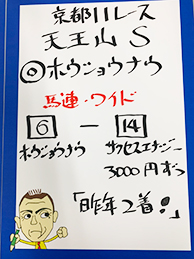 京都11レース
天王山S
◎ホウショウナウ
馬連・ワイド
6 － 14
ホウショウナウ サクセスエナジー
3000円ずつ
「昨年2着!」